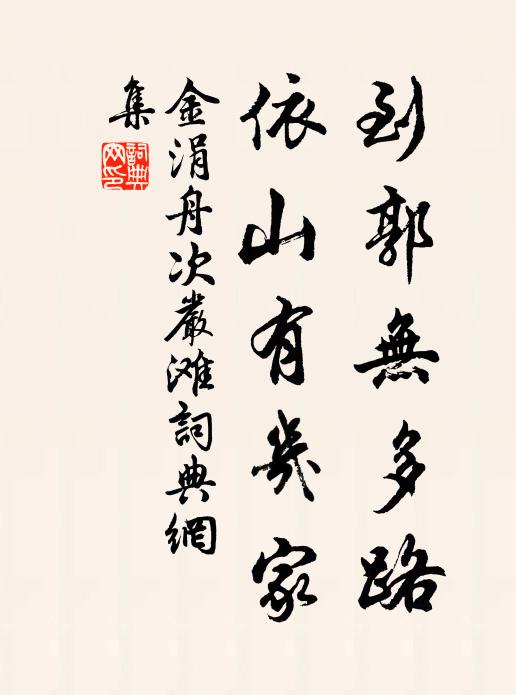 到郭無多路
依山有幾家
金涓舟次嚴滩詞典網
集
詞典网印